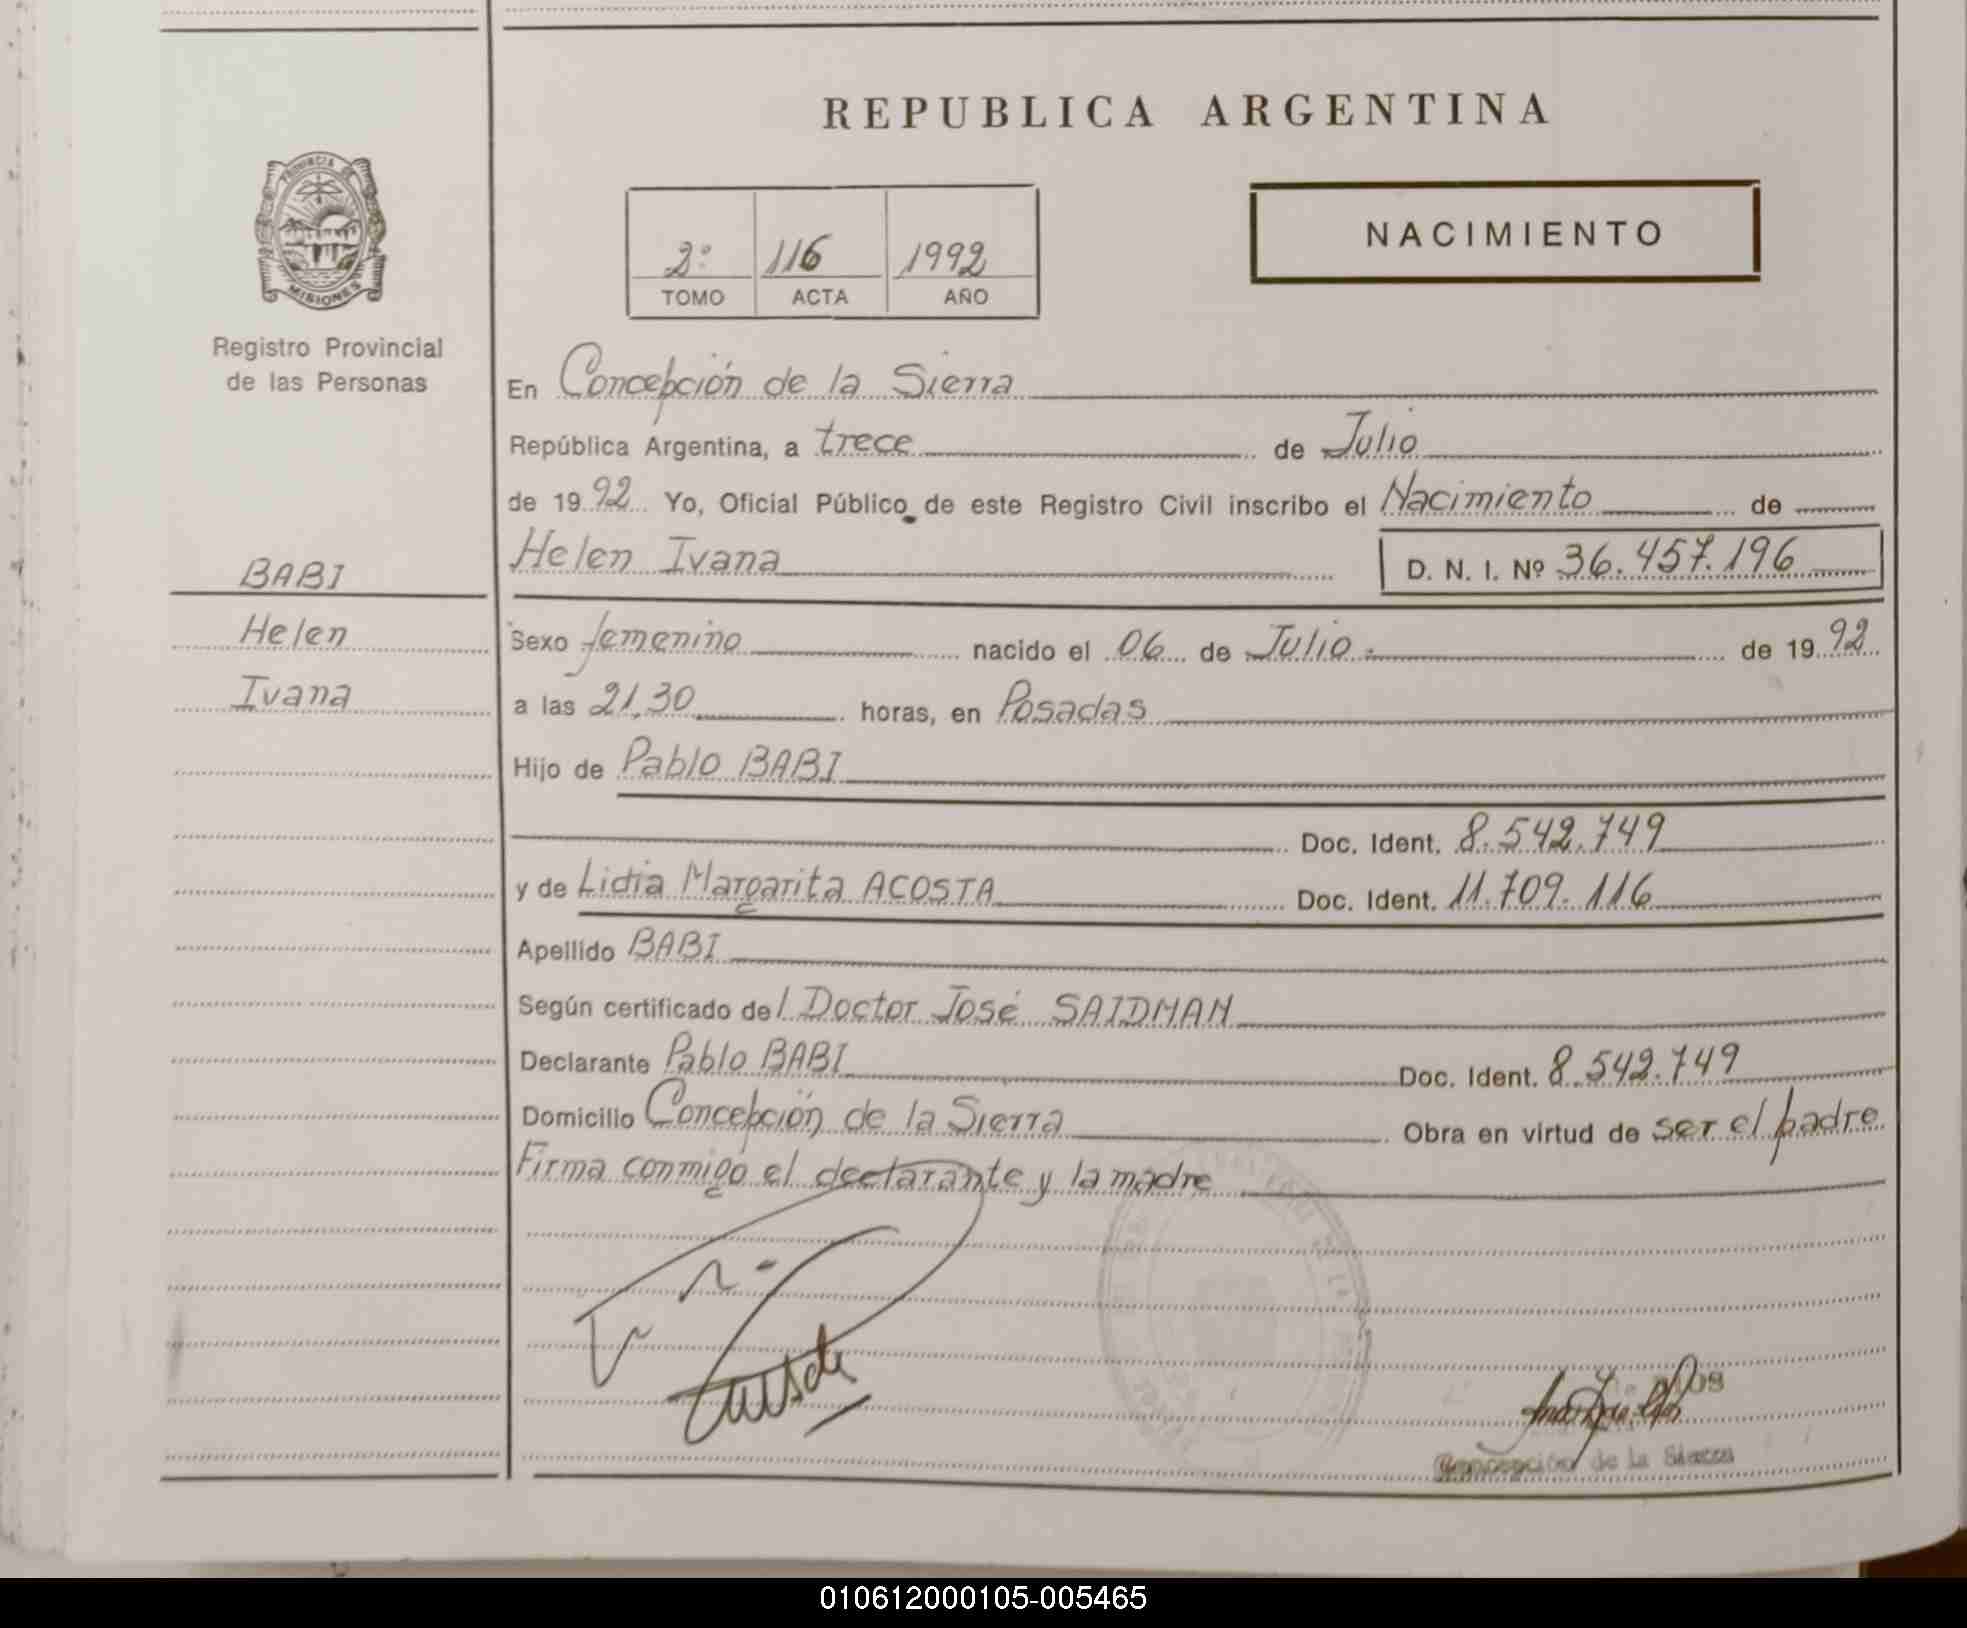 REPUBLICA ARGENTINA
PROVINCIA DE
MISIONES
Registro Provincial
de las Personas
2º 116 1992
TOMO ACTA AÑO
NACIMIENTO
En Concepción de la Sierra
República Argentina, a trece de Julio
de 1992 Yo, Oficial Público de este Registro Civil inscribo el Nacimiento de
Helen Ivana D. N. I. Nº 36.457.196
BABI
Helen
Ivana
Sexo femenino nacido el 06 de Julio de 1992
a las 21,30 horas, en Posadas
Hijo de Pablo BABI
Doc. Ident. 8.542.749
y de Lidia Margarita ACOSTA Doc. Ident. 11.709.116
Apellido BABI
Según certificado del Doctor José SAIDMAN
Declarante Pablo BABI Doc. Ident. 8.542.749
Domicilio Concepción de la Sierra Obra en virtud de ser el padre
Firma conmigo el declarante y la madre
Concepción de la Sierra
010612000105-005465